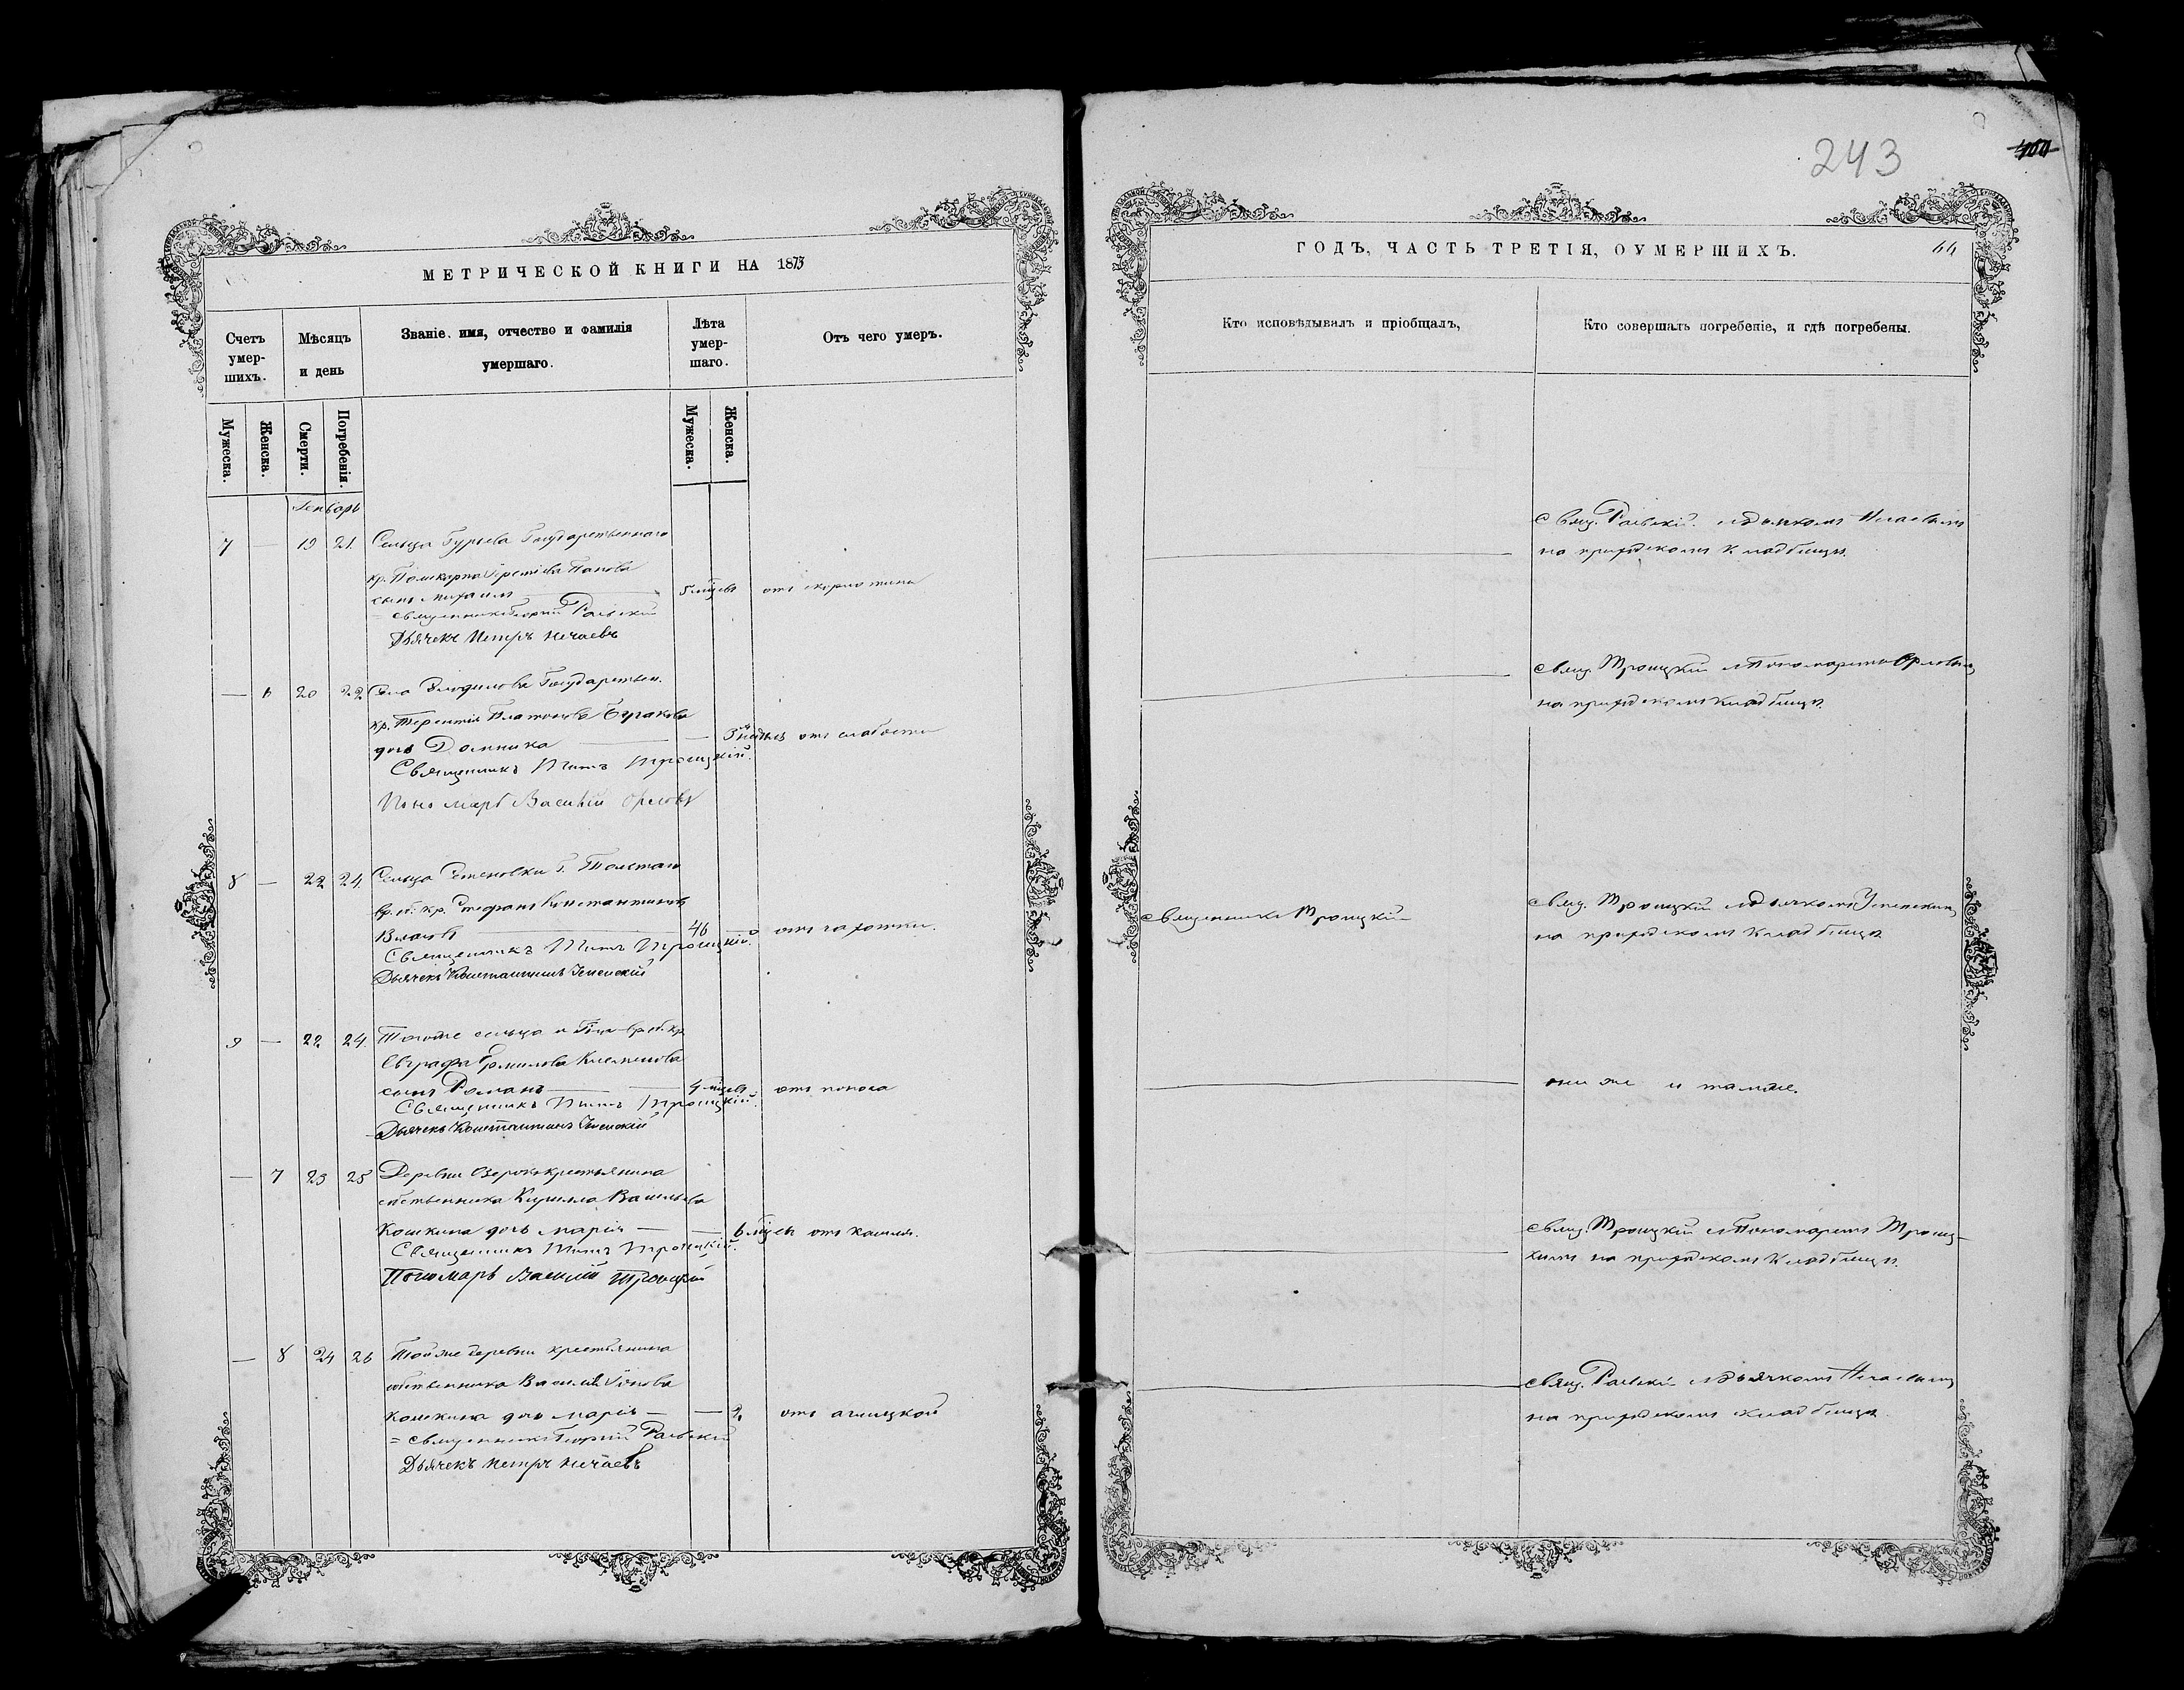 243
МЕТРИЧЕСКОЙ КНИГИ НА 1873
ГОДЪ, ЧАСТЬ ТРЕТІЯ, О УМЕРШИХЪ.
44
Счетъ умер-шихъ.
Мѣсяцъ и день
Званіе, имя, отчество и фамилія
умершаго.
Лѣта умер-шаго.
Отъ чего умеръ.
Кто исповѣдывалъ и пріобщалъ,
Кто совершалъ погребеніе, и гдѣ погребены.
Мужеска.
Женска.
Смерти.
Погребенія.
Мужеска.
Женска.
Генварь
7 — 19 21. Сельца Гурьева Государственнаго
кр. Поликарпа Попова
сынъ Михаилъ — 5 мцевъ отъ скорлатины
= священникъ Георгій Раевскій
Дьячекъ Петръ Нечаевъ
свящ. Раевскій. съ дьячкомъ Нечаевымъ
на приходскомъ кладбищѣ.
— 6 20 22 Села Государствен.
кр. Терентія Платонова Буракова
дочь Домника — — 3 недѣль отъ слабости
Священникъ Титъ Троицкій.
Пономарь Василій Орловъ
свящ. Троицкій съ Пономаремъ Орловымъ
на приходскомъ кладбищѣ.
8 — 22 24. Сельца Г. Толстаго
вр. об. кр. Стефанъ Константиновъ
Власовъ — 46 отъ чахотки.
Священникъ Титъ Троицкій.
Дьячекъ Константинъ Успенскій
священникъ Троицкій
свящ. Троицкій съ дьячкомъ Успенскимъ
на приходскомъ кладбищѣ
9 — 22 24. Тогоже сельца и Г-на вр. об. кр.
Евграфа Ермилова
сынъ Романъ — 4 мцевъ отъ поноса
Священникъ Титъ Троицкій.
Дьячекъ Константинъ Успенскій
они же и тамже.
— 7 23 25 Деревни крестьянина
собственника Кирилла Васильева
Кошкина дочь Марія — — 6 мцевъ отъ кашля.
Священникъ Титъ Троицкій.
Пономарь Василій Троицкій
свящ. Троицкій съ Пономаремъ Троиц-
кимъ на приходскомъ кладбищѣ.
— 8 24 26 Тойже деревни крестьянина
собственника Василія
Кошкина дочь Марія — — 2 отъ
= священникъ Георгій Раевскій
Дьячекъ Петръ Нечаевъ
свящ. Раевскій съ дьячкомъ Нечаевымъ
на приходскомъ кладбищѣ.